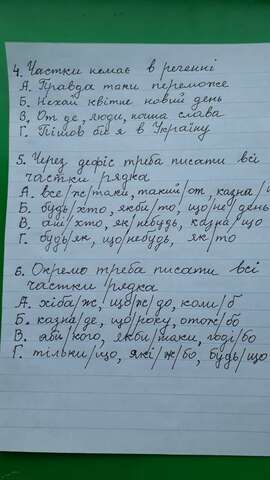 4. Частки немає в реченні
А. Правда таки переможе
Б. Нехай квітне новий день
В. От де, люди, наша слава
Г. Пішов би я в Україну
5. Через дефіс треба писати всі
частки рядка
А. все/ж/таки, такий/от, казна/
Б. будь/хто, якби/то, що/не/день
В. аби/хто, як/небудь, казна/що
Г. будь/як, що/небудь, як/то
6. Окремо треба писати всі
частки рядка
А. хіба/ж, що/ж/до, коли/б
Б. казна/де, що/року, отож/бо
В. аби/кого, якби/таки, годі/бо
Г. тільки/що, які/ж/бо, будь/що